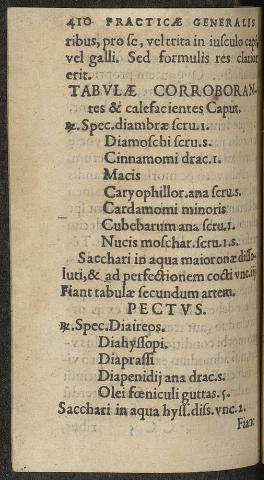 410 PRACTICÆ GENERALIS
ribus, pro se, vel trita in iusculo capi,
vel galli. Sed formulis res clarior
erit.
TABVLÆ CORROBORAN-
tes & calefacientes Caput.
℞. Spec. diambræ scru. 1.
Diamoschi scru. s.
Cinnamomi drac. 1.
Macis
Caryophillor. ana scru. s.
Cardamomi minoris
Cubebarum ana scru. 1.
Nucis moschar. scru. 1. s.
Sacchari in aqua maioranæ disso-
luti, & ad perfectionem cocti vnc. iij
Fiant tabulæ secundum artem.
PECTVS.
℞. Spec. Diaireos.
Diahyssopi.
Diaprassi
Diapenidij ana drac. s.
Olei fœniculi guttas. 5.
Sacchari in aqua hyss. diss. vnc. 2.
Fiant